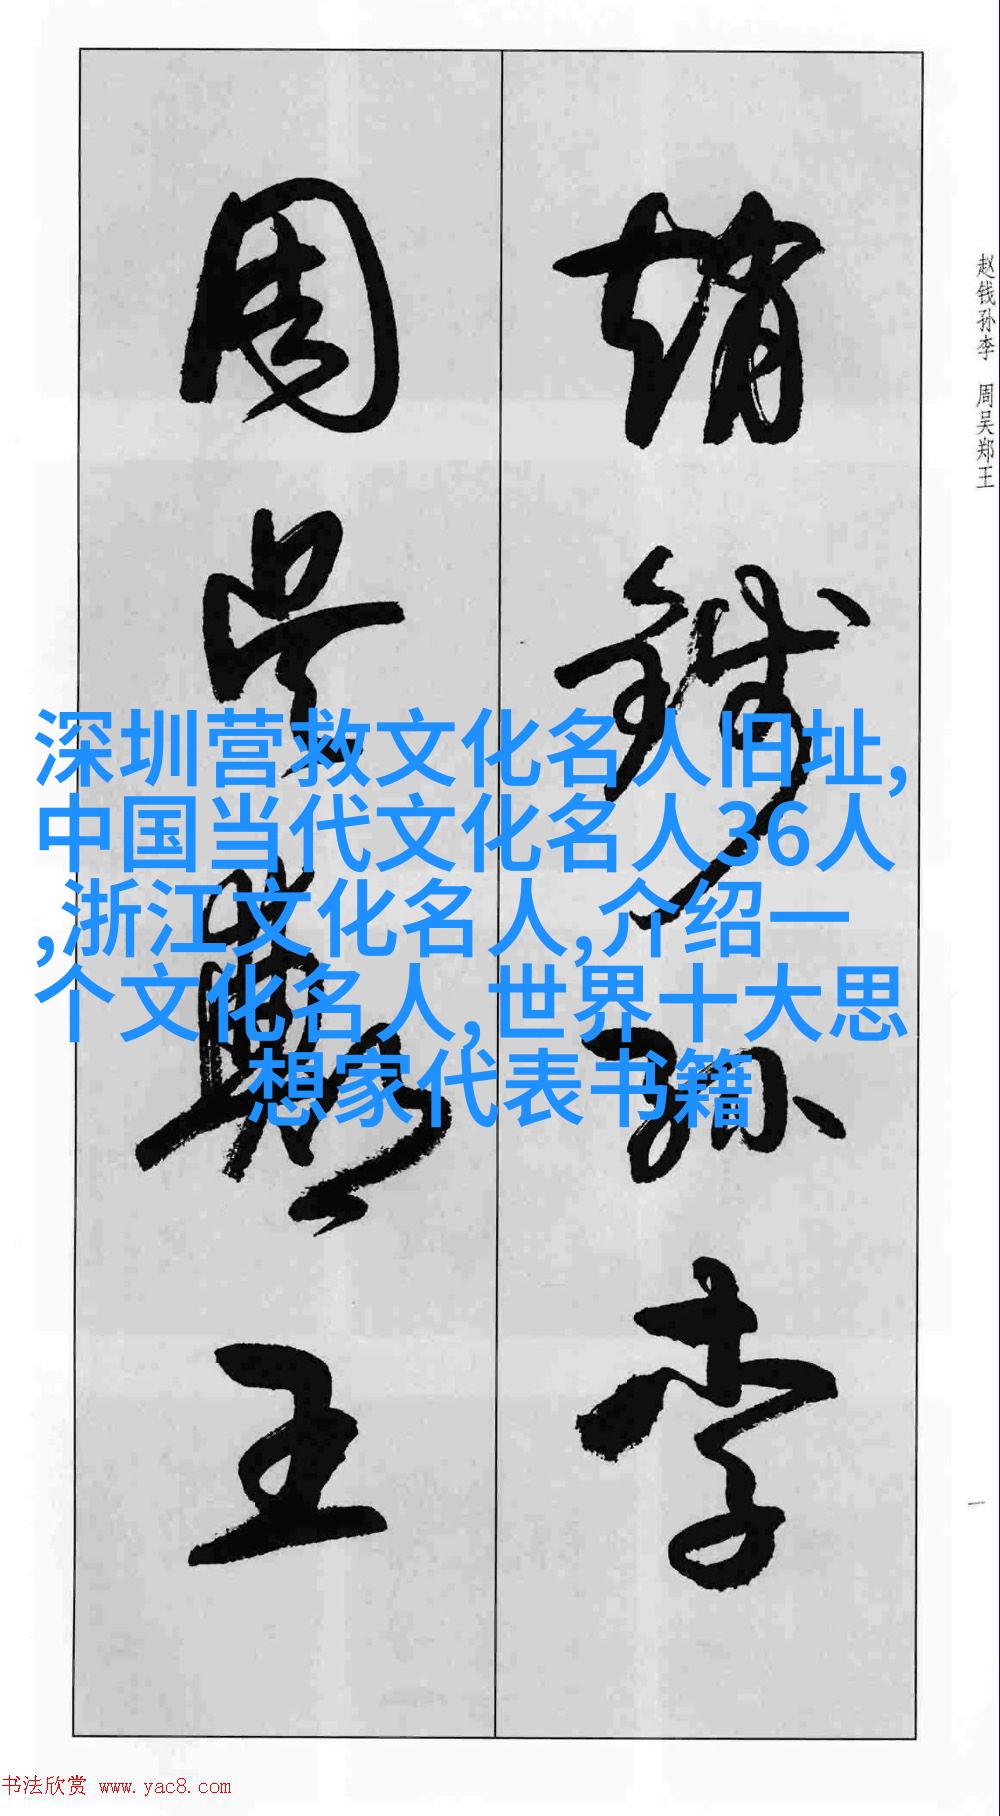 趙錢孫李
周吳鄭王
赵钱孙李 周吴郑王
深圳营救文化名人旧址,
中国当代文化名人36人
,浙江文化名人,介绍一
个文化名人,世界十大思
想家代表书籍
一
书法欣赏 www.yac8.com